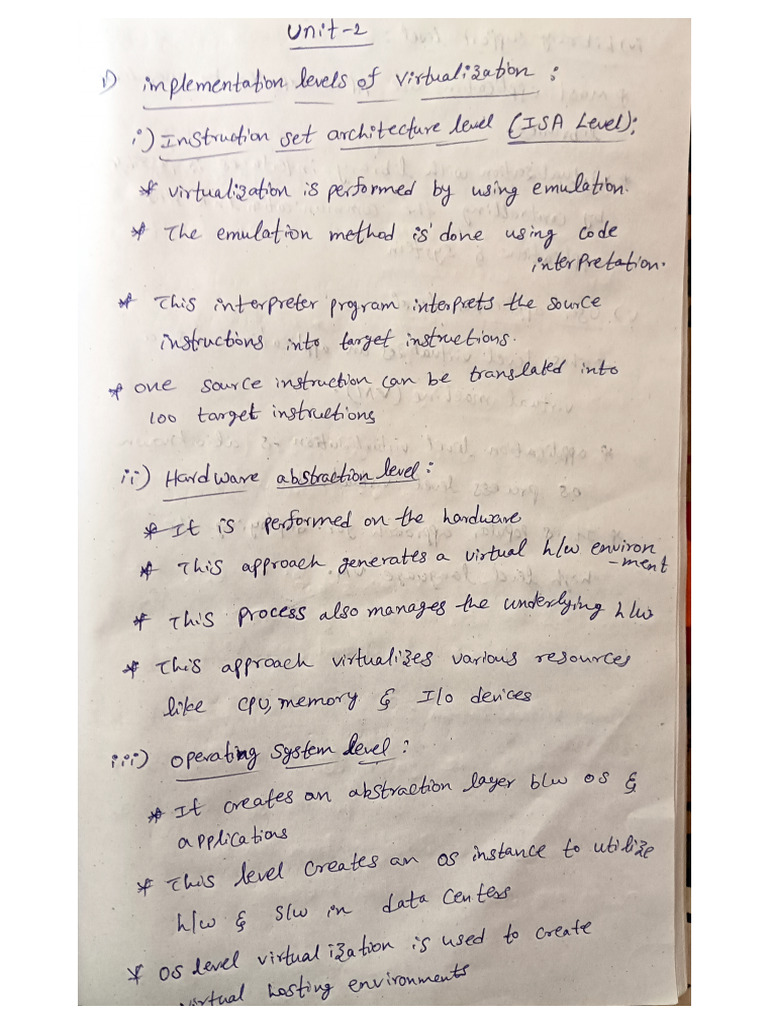 Unit-2
1) implementation levels of virtualization :
i) Instruction set architecture level (ISA Level);
* virtualization is performed by using emulation.
* The emulation method is done using code
interpretation.
* This interpreter program interprets the source
instructions into target instructions.
* one source instruction can be translated into
100 target instructions
ii) Hardware abstraction level :
* It is performed on the hardware
* This approach generates a virtual h/w environ
-ment
* This process also manages the underlying h/w
* This approach virtualizes various resources
like CPU, memory & I/o devices
iii) operating system level :
* It creates an abstraction layer b/w OS &
applications
* This level creates an os instance to utilize
h/w & s/w in data centers
* OS level virtualization is used to create
virtual hosting environments